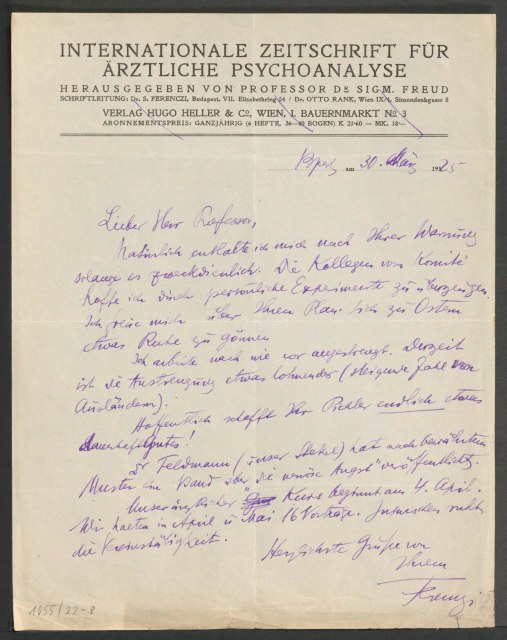 INTERNATIONALE ZEITSCHRIFT FÜR
ÄRZTLICHE PSYCHOANALYSE
HERAUSGEGEBEN VON PROFESSOR DR SIGM. FREUD
SCHRIFTLEITUNG: Dr. S. FERENCZI, Budapest, VII. Elisabethring 54 / Dr. OTTO RANK, Wien IX/4, Simondenkgasse 8
VERLAG HUGO HELLER & Co, WIEN, I. BAUERNMARKT No 3
ABONNEMENTSPREIS: GANZJÄHRIG (6 HEFTE, 36—40 BOGEN) K 21·60 = MK. 18·—
Bpest am 30. März 1925
Lieber Herr Professor,
Natürlich enthalte ich mich nach Ihrer Warnung
solange es zweckdienlich. Die Kollegen vom Komité
hoffe ich durch persönliche Experimente zu überzeugen.
Ich freue mich über Ihren Plan sich zu Ostern
etwas Ruhe zu gönnen
Ich arbeite nach wie vor angestrengt. Derzeit
ist die Anstrengung etwas lohnender (steigende Zahl von
Ausländern).
Hoffentlich schafft Ihr Pichler endlich etwas
dauerhaft Gutes!
Dr Feldmann (unser Stekel) hat nach bewährtem
Muster ein Band über "die nervöse Angst" veröffentlicht.
Unser ärztlicher Kurs beginnt am 4. April.
Wir halten in April u Mai 16 Vorträge. Inzwischen ruht
die Vereinstätigkeit.
Herzlichste Grüße von
Ihrem
Ferenczi
1055/22-8